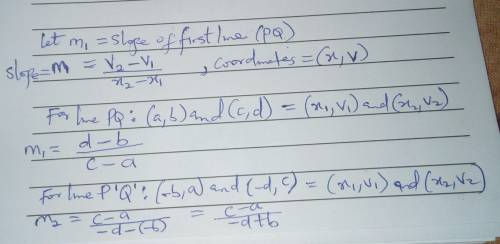 Let m₁ = slope of first line (PQ)
slope = m = (v₂ - v₁)/(x₂ - x₁) , coordinates = (x, v)
For line PQ: (a, b) and (c, d) = (x₁, v₁) and (x₂, v₂)
m₁ = (d - b)/(c - a)
For line P'Q': (-b, a) and (-d, c) = (x₁, v₁) and (x₂, v₂)
m₂ = (c - a)/(-d - (-b)) = (c - a)/(-d + b)